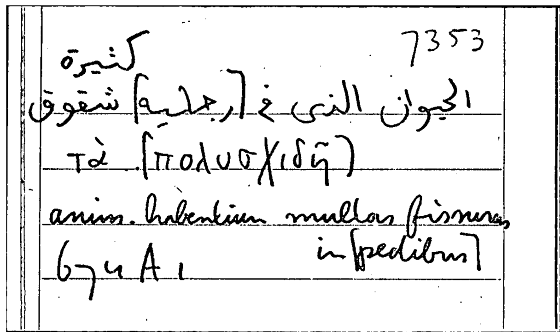 7353
كثيرة
الحيوان الذى فى [رجليه] شقوق
τὰ [πολυσχιδῆ]
anim. habentium multas fissuras
in [pedibus]
674 A 1